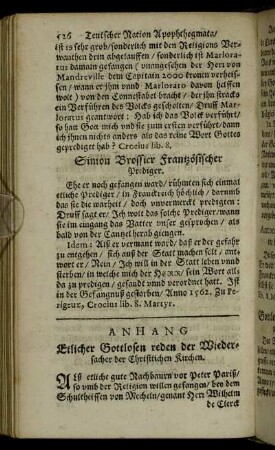 526 Teutscher Nation Apophthegmata/
ist es sehr grob/ sonderlich mit den Religions Ver-
wanthen drin abgelauffen / sonderlich ist Marlora-
tus damain gefangen ( vnangesehen der Herr von
Mandreville dem Capitain 2000 kronen verheis-
sen / wann er ihm vnnd Marloraro davon helffen
wolt ) vor den Connestabel bracht / der ihn stracks
ein Verführer des Volcks gescholten / Druff Mar-
loratus geantwort: Hab ich das Volck verführt/
so han Gott mich vnd sie zum ersten verführt/ dann
ich ihnen nichts anders als das reine Wort Gottes
geprediget hab? Crocius lib. 8.
Simon Brossier Frantzösischer
Prediger.
Ehe er noch gefangen ward / rühmten sich einmal
etliche Prediger / in Franckreich höchlich / darumb
das sie die warheit / doch vnvermerckt predigten:
Druff sagt er / Ich wolt das solche Prediger/wann
sie im eingang das Vatter vnser gesprochen / als
bald von der Cantzel herab giengen.
Idem: Alß er vermant ward/ daß er der gefahr
zu entgehen / sich auß der Statt machen solt / ant-
wort er / Nein / Ich will in der Statt leben vnnd
sterben / in welche mich der HERR/ sein Wort all-
da zu predigen / gesandt vnnd verordnet hatt. Ist
in der Gefängnuß gestorben / Anno 1562. Zu Pe-
rigeux, Crocius lib. 8. Martyr.
ANHANG
Etlicher Gottlosen reden der Wieder-
sacher der Christlichen Kirchen.
Alß etliche gute Nachbaurn vor Peter Pariß/
so vmb der Religion willen gefangen / bey dem
Schultheissen von Mecheln/ genant Herr Wilhelm
de Clerck